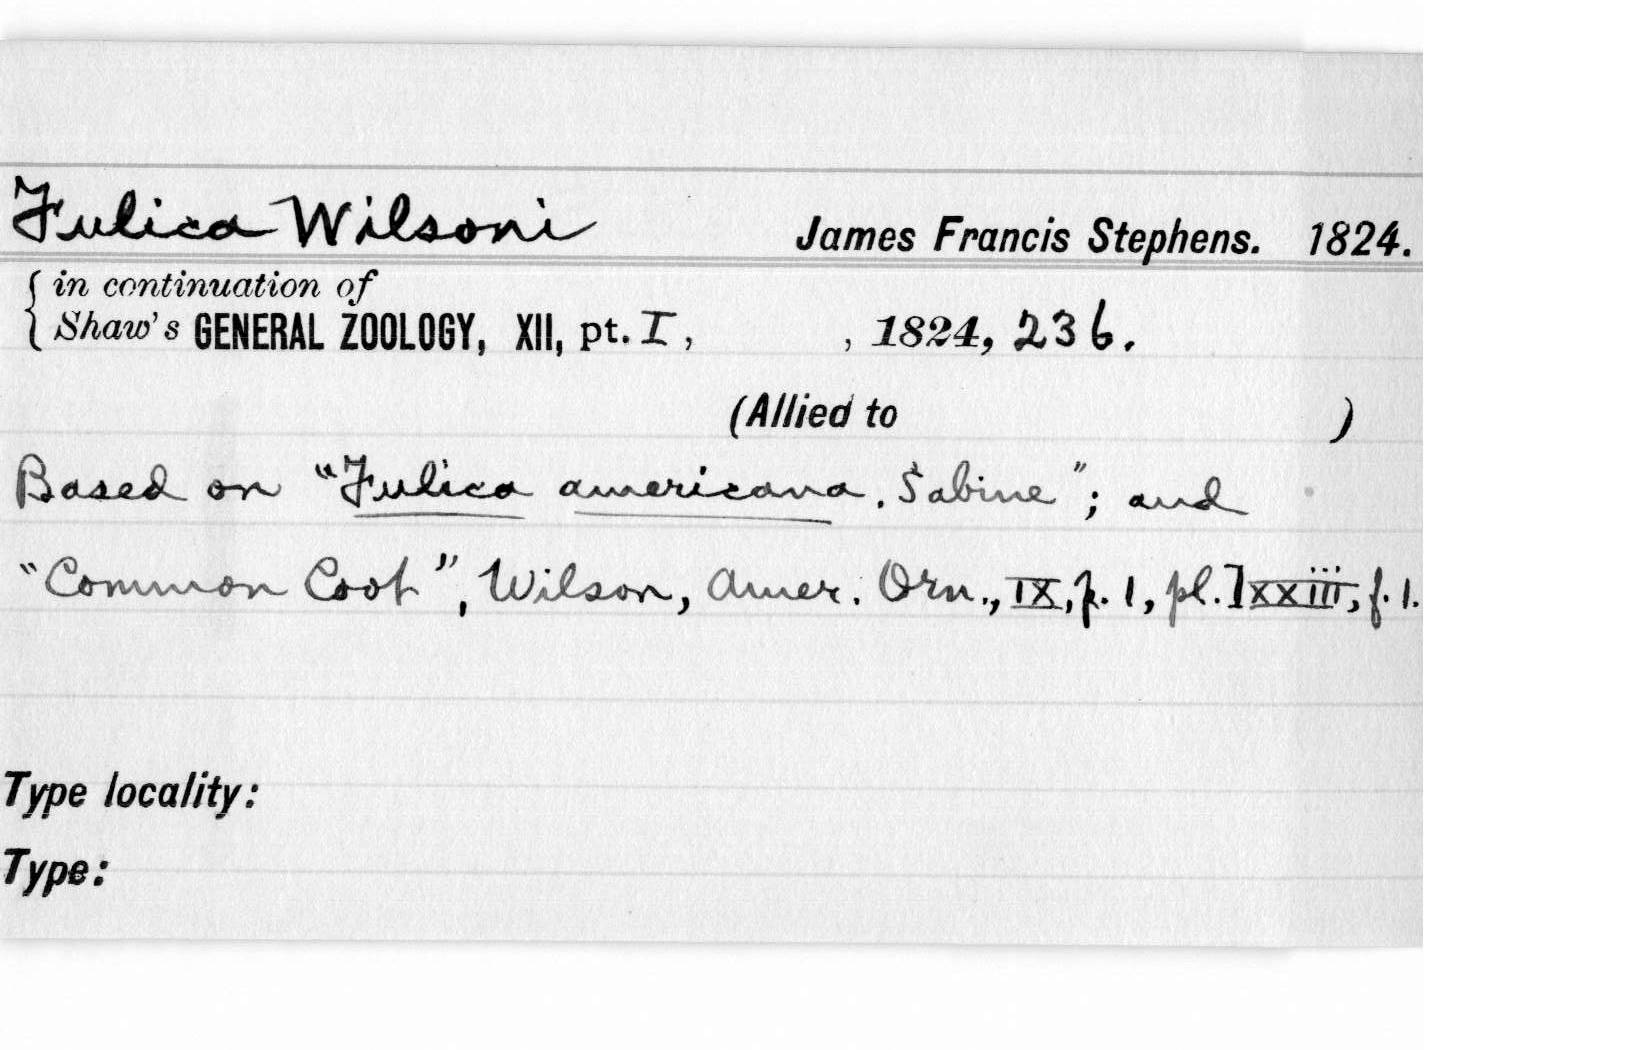 Fulica Wilsoni James Francis Stephens. 1824.
in continuation of
Shaw's GENERAL ZOOLOGY, XII, pt. I, , 1824, 236.
(Allied to )
Based on "Fulica americana. Sabine"; and
"Common Coot", Wilson, Amer. Orn., IX, p. 1, pl. lxxiii, f. 1.
Type locality:
Type: